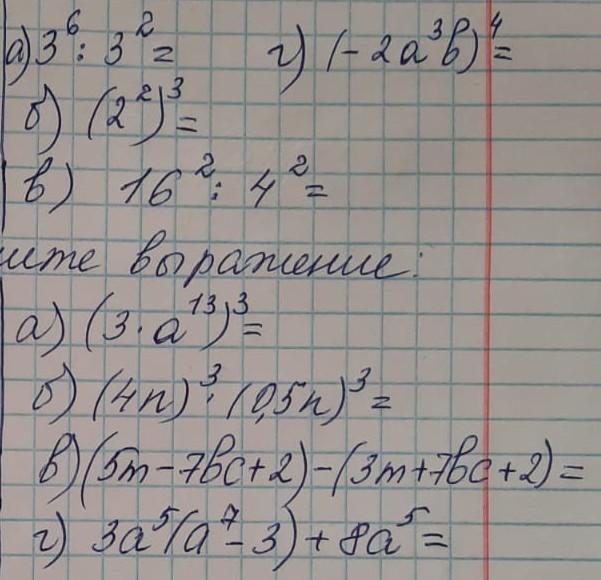 а) 3⁶ : 3² = г) (-2a³b)⁴ =
б) (2²)³ =
в) 16² : 4² =
ите выражение:
а) (3 · a¹³)³ =
б) (4n)³ · (0,5n)³ =
в) (5m - 7bc + 2) - (3m + 7bc + 2) =
г) 3a⁵(a⁷ - 3) + 8a⁵ =